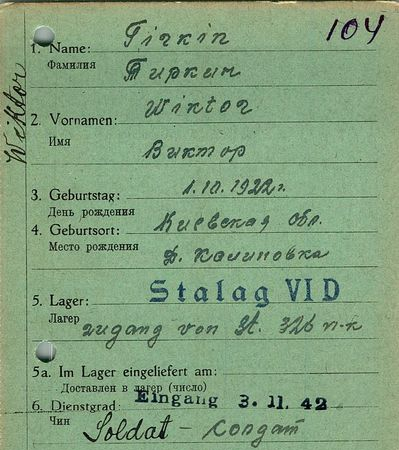 104
1. Name: Tirkin
Фамилия Тиркин
Wiktor
2. Vornamen: Wiktor
Имя Виктор
3. Geburtstag: 1.10.1922 г.
День рождения
4. Geburtsort: Киевская обл.
Место рождения д. Калиновка
5. Lager: Stalag VI D
Лагерь zugang von St. 326 п-к
5a. Im Lager eingeliefert am:
Доставлен в лагерь (число)
6. Dienstgrad: Eingang 3. 11. 42
Чин Soldat – солдат